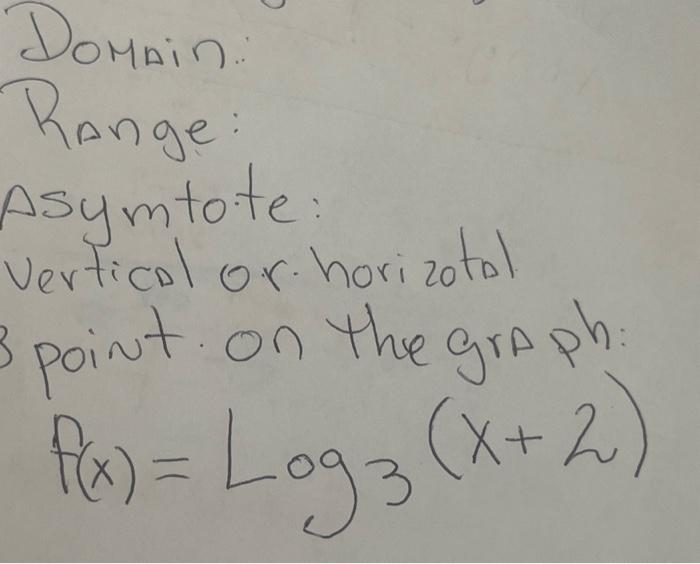 Domain:
Range:
Asymtote:
vertical or horizotal
3 point on the graph:
f(x) = Log₃ (x+2)